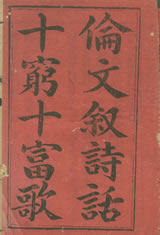 倫文叙詩話
十窮十富歌